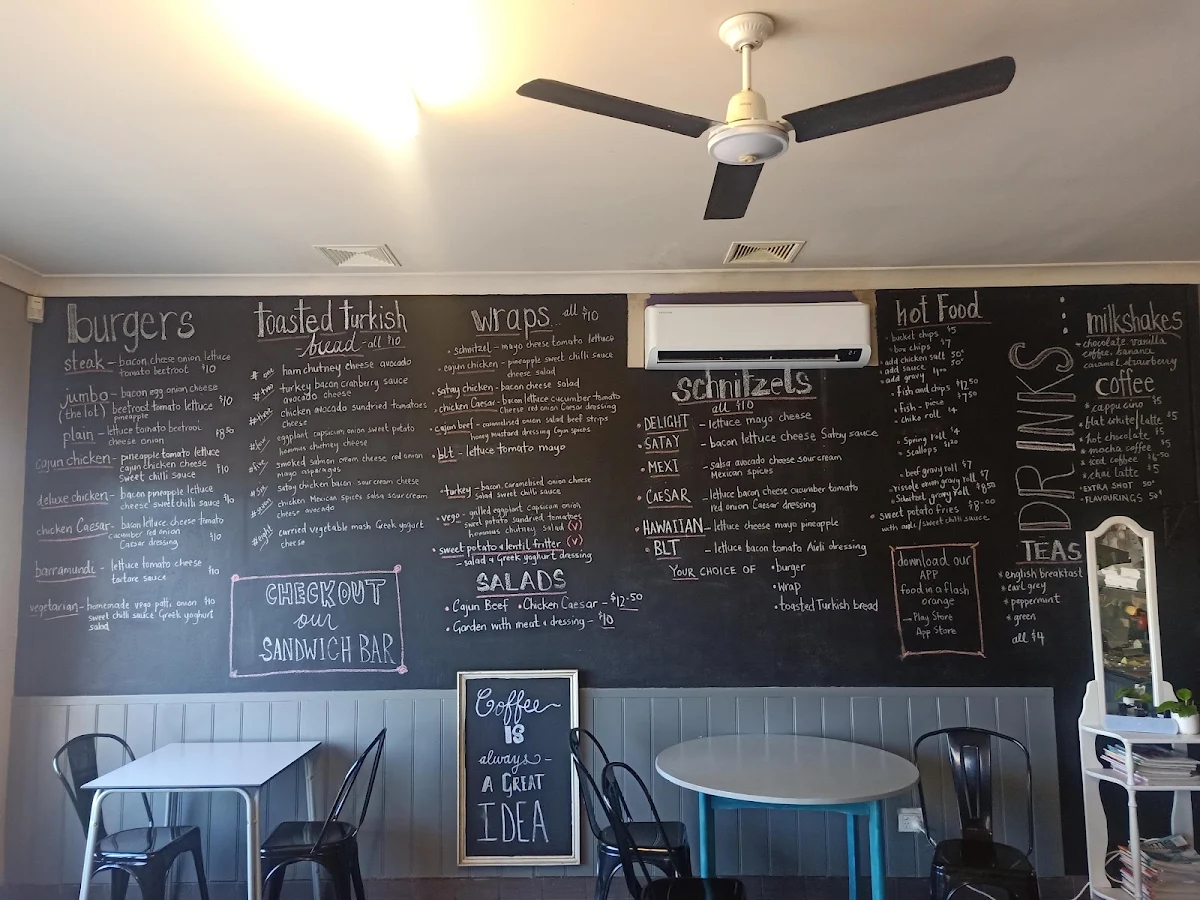 burgers
steak - bacon cheese onion lettuce
tomato beetroot $10
jumba - bacon egg onion cheese
(the lot) beetroot tomato lettuce $10
pineapple
plain - lettuce tomato beetroot
cheese onion $8.50
cajun chicken - pineapple tomato lettuce
cajun chicken cheese
sweet chilli sauce $10
deluxe chicken - bacon pineapple lettuce
cheese sweet chilli sauce $10
chicken Caesar - bacon lettuce cheese tomato
cucumber red onion
Caesar dressing $10
barramundi - lettuce tomato cheese
tartare sauce $10
vegetarian - homemade vego patti, onion $10
sweet chilli sauce Greek yoghurt
salad
toasted Turkish
bread - all $10
#one ham chutney cheese avocado
#two turkey bacon cranberry sauce
avocado cheese
#three chicken avocado sundried tomatoes
cheese
#four eggplant capsicum onion sweet potato
hommus chutney cheese
#five smoked salmon cream cheese red onion
mayo asparagus
#six satay chicken bacon sour cream cheese
#seven chicken Mexican spices salsa sour cream
cheese avocado
#eight curried vegetable mash Greek yoghurt
cheese
CHECKOUT
our
SANDWICH BAR
wraps all $10
• schnitzel - mayo cheese tomato lettuce
• cajun chicken - pineapple sweet chilli sauce
cheese salad
satay chicken - bacon cheese salad
• chicken Caesar - bacon lettuce cucumber tomato
cheese red onion Caesar dressing
• cajun beef - caramelised onion salad beef strips
honey mustard dressing
• blt - lettuce tomato mayo
• turkey - bacon caramelised onion cheese
salad sweet chilli sauce
• vego - grilled eggplant capsicum onion
sweet potato sundried tomatoes
hommus chutney salad (v)
• sweet potato & lentil fritter (v)
- salad & Greek yoghurt dressing
SALADS
• Cajun Beef • Chicken Caesar - $12-50
• Garden with meat & dressing - $10
schnitzels
all $10
• DELIGHT - lettuce mayo cheese
• SATAY - bacon lettuce cheese Satay sauce
• MEXI - salsa avocado cheese sour cream
Mexican spices
• CAESAR - lettuce bacon cheese cucumber tomato
red onion Caesar dressing
• HAWAIIAN - lettuce cheese mayo pineapple
• BLT - lettuce bacon tomato Aioli dressing
YOUR CHOICE OF • burger
• wrap
• toasted Turkish bread
hot Food
• bucket chips $5
• box chips $7
• add chicken salt 50¢
• add sauce 50¢
• add gravy
• fish and chips $12.50
• fish - piece $7.50
• chiko roll $4
• Spring roll $4
• Scallops
• beef gravy roll $7
• rissole onion gravy roll $7
• Schnitzel gravy roll $8.50
• sweet potato fries $8.00
with aioli / sweet chilli sauce
download our
APP
food in a flash
orange
- Play Store
App Store
DRINKS
milkshakes
• chocolate, vanilla
coffee, banana
caramel, strawberry
coffee
• cappucino $5
• flat white/latte $5
• hot chocolate $5
• mocha coffee $5
• iced coffee
• chai latte $5
• EXTRA SHOT 50¢
• FLAVOURINGS 50¢
TEAS
• english breakfast
• earl grey
• peppermint
• green
all $4
Coffee
IS
always -
A GREAT
IDEA